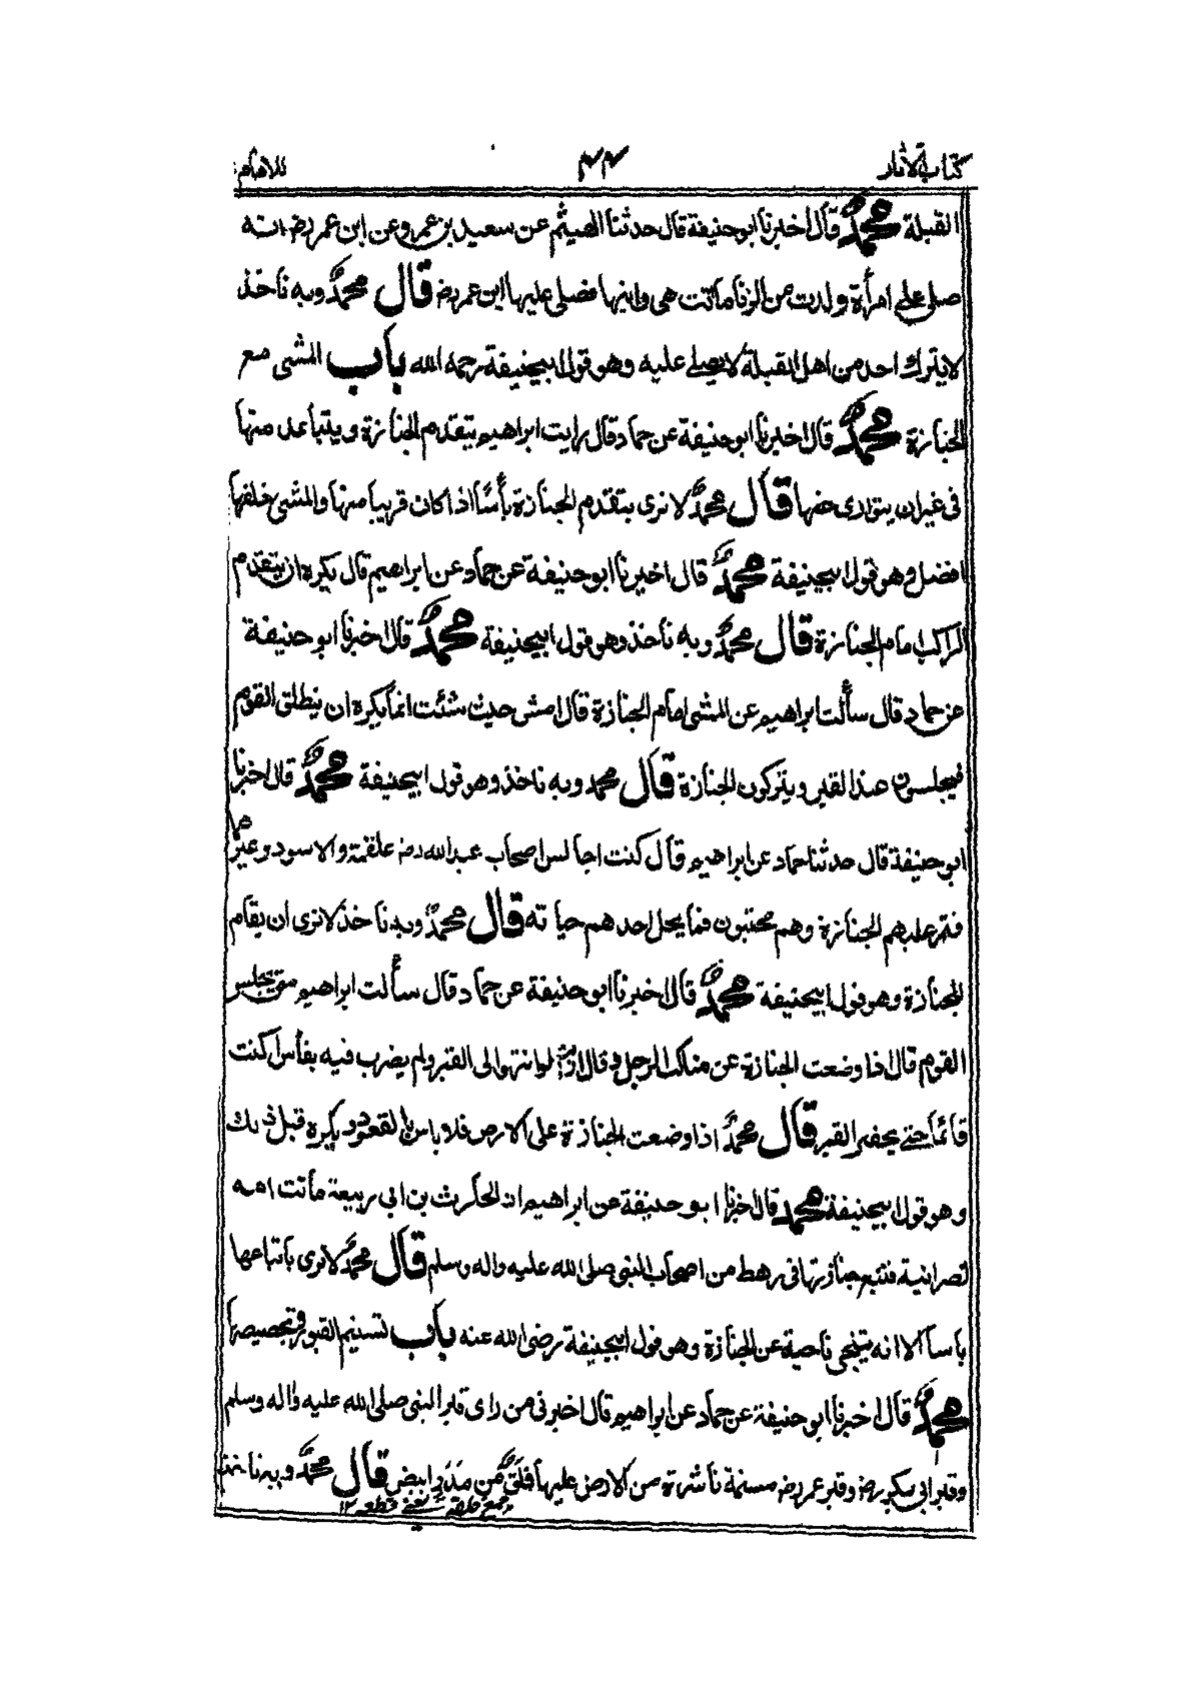 كتاب الاثار ٤٤ للامام
القبلة محمد قال اخبرنا ابو حنيفة قال حدثنا الهيثم عن سعيد بن عمرو عن ابن عمر رض انه
صلى على امرأة ولدت من الزنا ماتت هى وابنها فصلى عليها ابن عمر رض قال محمد وبه ناخذ
لا يترك احد من اهل القبلة لا يصلى عليه وهو قول ابيحنيفة رحمه الله باب المشى مع
الجنازة محمد قال اخبرنا ابو حنيفة عن حماد قال رايت ابراهيم يتقدم الجنازة ويتباعد منها
فى غير ان يتوارى عنها قال محمد لا نرى بتقدم الجنازة بأسًا اذا كان قريبا منها والمشى خلفها
افضل وهو قول ابيحنيفة محمد قال اخبرنا ابو حنيفة عن حماد عن ابراهيم قال يكره ان يتقدم
الراكب امام الجنازة قال محمد وبه ناخذ وهو قول ابيحنيفة محمد قال اخبرنا ابو حنيفة
عن حماد قال سألت ابراهيم عن المشى امام الجنازة قال امش حيث شئت انما يكره ان ينطلق القوم
فيجلسون عند القبر ويتركون الجنازة قال محمد وبه ناخذ وهو قول ابيحنيفة محمد قال اخبرنا
ابو حنيفة قال حدثنا حماد عن ابراهيم قال كنت اجالس اصحاب عبد الله رض علقمة والاسود وغيرهما
فتمر عليهم الجنازة وهم محتبون فما يحل احدهم حباته قال محمد وبه ناخذ لا نرى ان يقام
للجنازة وهو قول ابيحنيفة محمد قال اخبرنا ابو حنيفة عن حماد قال سألت ابراهيم متى يجلس
القوم قال اذا وضعت الجنازة عن مناكب الرجال وقال لو انتهوا الى القبر ولم يضرب فيه بفأس اكنت
قائما حتى يحفر القبر قال محمد اذا وضعت الجنازة على الارض فلا باس بالقعود ويكره قبل ذلك
وهو قول ابيحنيفة محمد قال اخبرنا ابو حنيفة عن ابراهيم ان الحارث بن ابى ربيعة ماتت امه
نصرانية فتبع جنازتها فى رهط من اصحاب النبى صلى الله عليه واله وسلم قال محمد لا نرى باتباعها
باسا الا انه يتنحى ناحية عن الجنازة وهو قول ابيحنيفة رضى الله عنه باب تسنيم القبور وتجصيصها
محمد قال اخبرنا ابو حنيفة عن حماد عن ابراهيم قال اخبرنى من راى قبر النبى صلى الله عليه واله وسلم
وقبر ابى بكر رض وقبر عمر رض مسنمة ناشزة من الارض عليها فلق من مدر ابيض قال محمد وبه ناخذ
يعنى قطعه ١٢